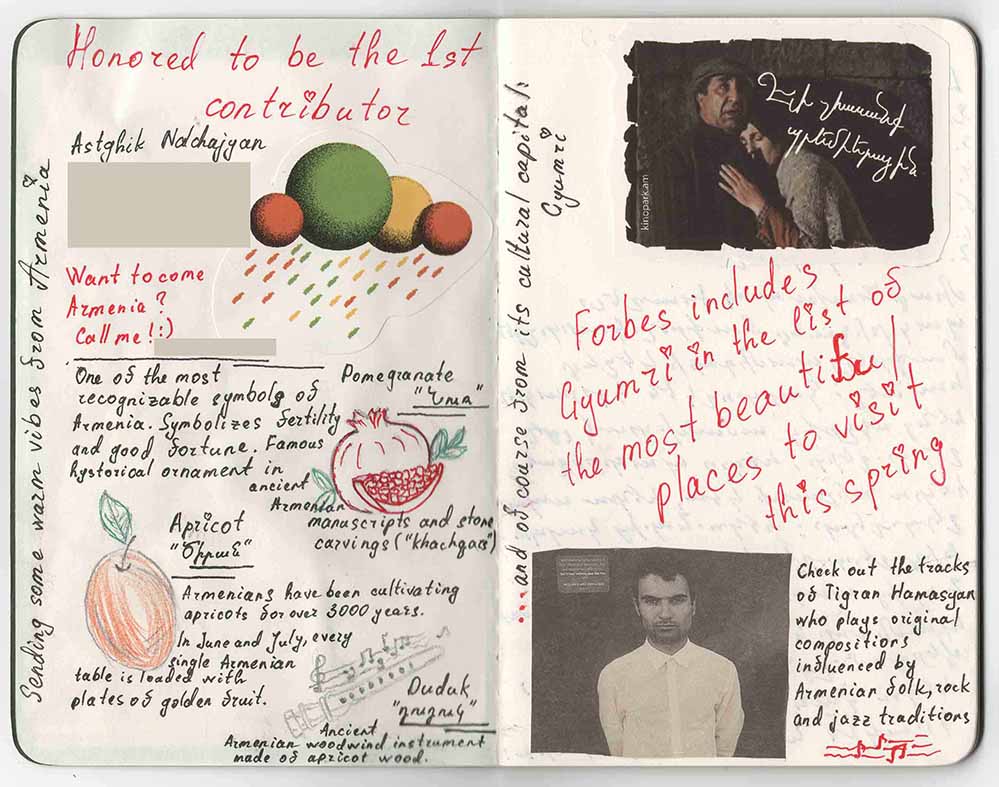 Honored to be the 1st
contributor
Astghik Nalchajyan
Sending some warm vibes from Armenia
Want to come
Armenia?
Call me!:)
One of the most
recognizable symbols of
Armenia. Symbolizes fertility
and good fortune. Famous
hystorical ornament in
ancient
Armenian
manuscripts and stone
carvings ("khachqars")
Pomegranate
"Նուռ"
Apricot
"Ծիրան"
Armenians have been cultivating
apricots for over 3000 years.
In June and July, every
single Armenian
table is loaded with
plates of golden fruit.
Duduk
"դուդուկ"
Ancient
Armenian woodwind instrument
made of apricot wood.
...and of course from its cultural capital:
Gyumri
պրեմիերային
kinopark.am
Forbes includes
Gyumri in the list of
the most beautiful
places to visit
this spring
Check out the tracks
of Tigran Hamasyan
who plays original
compositions
influenced by
Armenian folk, rock
and jazz traditions